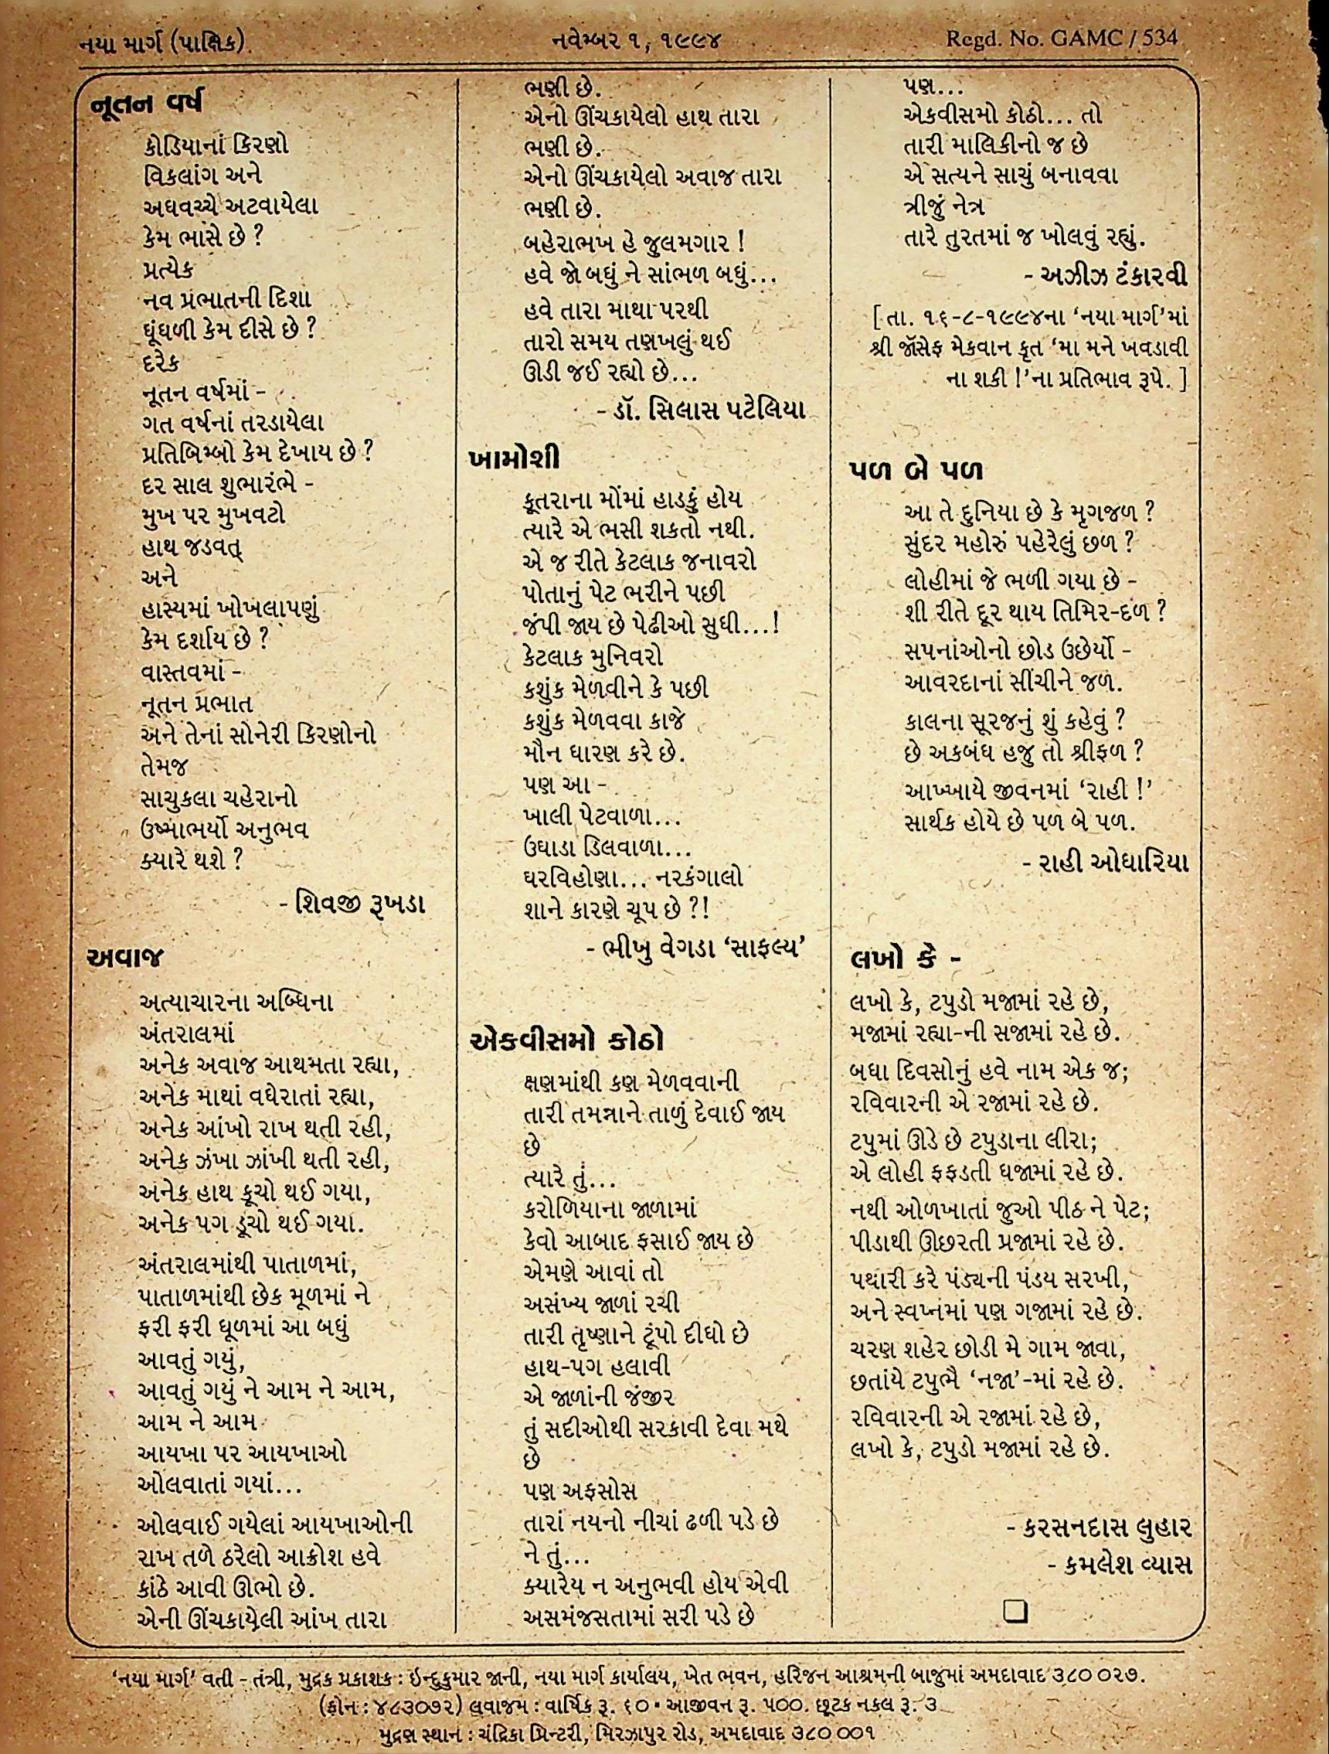 નયા માર્ગ (પાક્ષિક)
નવેમ્બર ૧, ૧૯૯૪
Regd. No. GAMC / 534
નૂતન વર્ષ
કોડિયાનાં કિરણો
વિકલાંગ અને
અધવચ્ચે અટવાયેલા
કેમ ભાસે છે ?
પ્રત્યેક
નવ પ્રભાતની દિશા
ધૂંધળી કેમ દીસે છે ?
દરેક
નૂતન વર્ષમાં -
ગત વર્ષનાં તરડાયેલા
પ્રતિબિમ્બો કેમ દેખાય છે ?
દર સાલ શુભારંભે -
મુખ પર મુખવટો
હાથ જડવત્
અને
હાસ્યમાં ખોખલાપણું
કેમ દર્શાય છે ?
વાસ્તવમાં -
નૂતન પ્રભાત
અને તેનાં સોનેરી કિરણોનો
તેમજ
સાચુકલા ચહેરાનો
ઉષ્માભર્યો અનુભવ
ક્યારે થશે ?
- શિવજી રૂખડા
અવાજ
અત્યાચારના અબ્ધિના
અંતરાલમાં
અનેક અવાજ આથમતા રહ્યા,
અનેક માથાં વધેરાતાં રહ્યા,
અનેક આંખો રાખ થતી રહી,
અનેક ઝંખા ઝાંખી થતી રહી,
અનેક હાથ કૂચો થઈ ગયા,
અનેક પગ ડૂચો થઈ ગયા.
અંતરાલમાંથી પાતાળમાં,
પાતાળમાંથી છેક મૂળમાં ને
ફરી ફરી ધૂળમાં આ બધું
આવતું ગયું,
આવતું ગયું ને આમ ને આમ,
આમ ને આમ
આયખા પર આયખાઓ
ઓલવાતાં ગયાં...
ઓલવાઈ ગયેલાં આયખાઓની
રાખ તળે ઠરેલો આક્રોશ હવે
કાંઠે આવી ઊભો છે.
એની ઊંચકાયેલી આંખ તારા
ભણી છે.
એનો ઊંચકાયેલો હાથ તારા
ભણી છે.
એનો ઊંચકાયેલો અવાજ તારા
ભણી છે.
બહેરાભખ હે જુલમગાર !
હવે જો બધું ને સાંભળ બધું...
હવે તારા માથા પરથી
તારો સમય તણખલું થઈ
ઊડી જઈ રહ્યો છે...
- ડૉ. સિલાસ પટેલિયા
ખામોશી
કૂતરાના મોંમાં હાડકું હોય
ત્યારે એ ભસી શકતો નથી.
એ જ રીતે કેટલાક જનાવરો
પોતાનું પેટ ભરીને પછી
જંપી જાય છે પેઢીઓ સુધી...!
કેટલાક મુનિવરો
કશુંક મેળવીને કે પછી
કશુંક મેળવવા કાજે
મૌન ધારણ કરે છે.
પણ આ -
ખાલી પેટવાળા...
ઉઘાડા ડિલવાળા...
ઘરવિહોણા... નરકંગાલો
શાને કારણે ચૂપ છે ?!
- ભીખુ વેગડા ‘સાફલ્ય’
એકવીસમો કોઠો
ક્ષણમાંથી કણ મેળવવાની
તારી તમન્નાને તાળું દેવાઈ જાય
છે
ત્યારે તું...
કરોળિયાના જાળામાં
કેવો આબાદ ફસાઈ જાય છે
એમણે આવાં તો
અસંખ્ય જાળાં રચી
તારી તૃષ્ણાને ટૂંપો દીધો છે
હાથ-પગ હલાવી
એ જાળાંની જંજીર
તું સદીઓથી સરકાવી દેવા મથે
છે
પણ અફસોસ
તારાં નયનો નીચાં ઢળી પડે છે
ને તું...
ક્યારેય ન અનુભવી હોય એવી
અસમંજસતામાં સરી પડે છે
પણ...
એકવીસમો કોઠો... તો
તારી માલિકીનો જ છે
એ સત્યને સાચું બનાવવા
ત્રીજું નેત્ર
તારે તુરતમાં જ ખોલવું રહ્યું.
- અઝીઝ ટંકારવી
[ તા. ૧૬-૮-૧૯૯૪ના ‘નયા માર્ગ’માં
શ્રી જૉસેફ મેકવાન કૃત ‘મા મને ખવડાવી
ના શકી !’ના પ્રતિભાવ રૂપે. ]
પળ બે પળ
આ તે દુનિયા છે કે મૃગજળ ?
સુંદર મહોરું પહેરેલું છળ ?
લોહીમાં જે ભળી ગયા છે -
શી રીતે દૂર થાય તિમિર-દળ ?
સપનાંઓનો છોડ ઉછેર્યો -
આવરદાનાં સીંચીને જળ.
કાલના સૂરજનું શું કહેવું ?
છે અકબંધ હજુ તો શ્રીફળ ?
આખ્ખાયે જીવનમાં ‘રાહી !’
સાર્થક હોયે છે પળ બે પળ.
- રાહી ઓધારિયા
લખો કે -
લખો કે, ટપુડો મજામાં રહે છે,
મજામાં રહ્યા-ની સજામાં રહે છે.
બધા દિવસોનું હવે નામ એક જ;
રવિવારની એ રજામાં રહે છે.
ટપુમાં ઊડે છે ટપુડાના લીરા;
એ લોહી ફફડતી ધજામાં રહે છે.
નથી ઓળખાતાં જુઓ પીઠ ને પેટ;
પીડાથી ઊછરતી પ્રજામાં રહે છે.
પથારી કરે પંડ્યની પંડય સરખી,
અને સ્વપ્નમાં પણ ગજામાં રહે છે.
ચરણ શહેર છોડી મે ગામ જાવા,
છતાંયે ટપુભૈ ‘નજા’-માં રહે છે.
રવિવારની એ રજામાં રહે છે,
લખો કે, ટપુડો મજામાં રહે છે.
- કરસનદાસ લુહાર
- કમલેશ વ્યાસ
‘નયા માર્ગ’ વતી - તંત્રી, મુદ્રક પ્રકાશક : ઇન્દુકુમાર જાની, નયા માર્ગ કાર્યાલય, ખેત ભવન, હરિજન આશ્રમની બાજુમાં અમદાવાદ ૩૮૦ ૦૨૭.
(ફોન : ૪૮૩૦૭૨) લવાજમ : વાર્ષિક રૂ. ૬૦ • આજીવન રૂ. ૫૦૦. છૂટક નકલ રૂ. ૩
મુદ્રણ સ્થાન : ચંદ્રિકા પ્રિન્ટરી, મિરઝાપુર રોડ, અમદાવાદ ૩૮૦ ૦૦૧